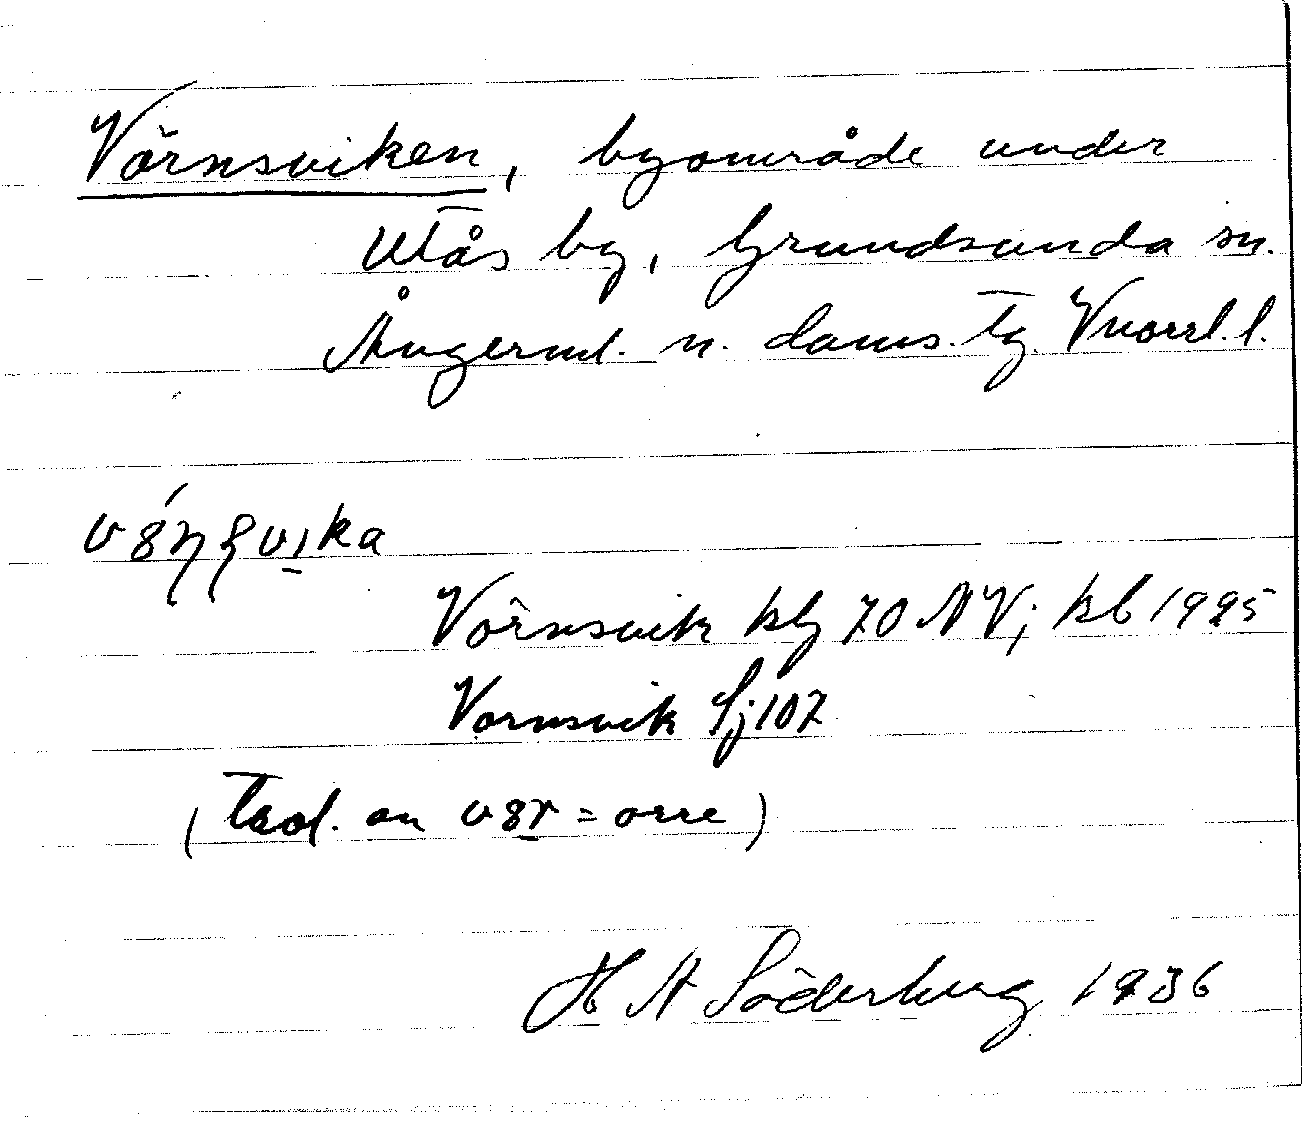 Vörnsviken, byområde under
Utås by, Grundsunda sn.
Ångerml. n. doms. tg. Vnorrl. l.
Vörnsvik kbg 70 NV; kb 1925
Vornsvik Sj 107
(Trol. an = orre)
H A Söderberg 1936